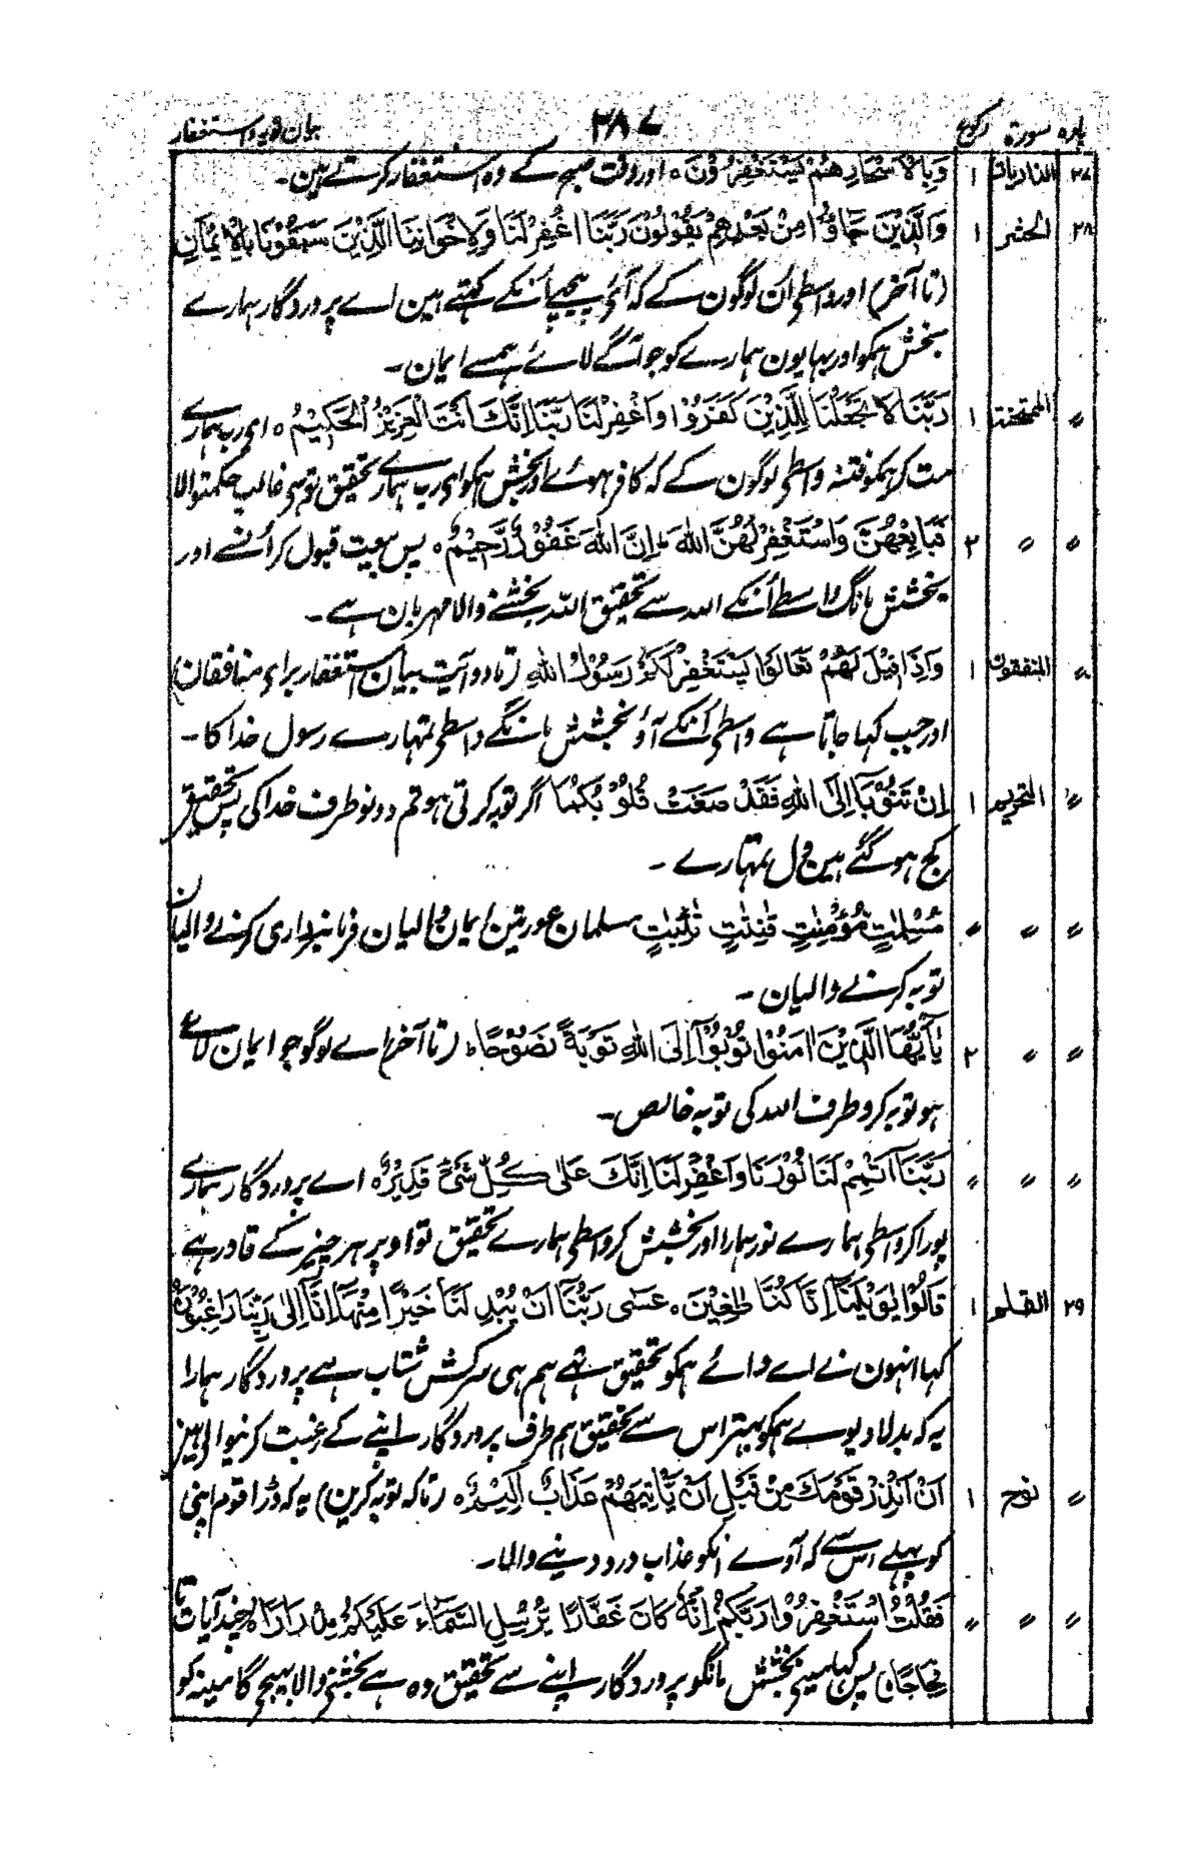 پارہ سورۃ رکوع ۳۸۷ بیان توبہ و استغفار
۲۷ الذاریات ۱ وَبِالْاَسْحَارِ هُمْ يَسْتَغْفِرُوْنَ ۰ اور وقت صبح کے وہ استغفار کرتے ہین۔
۲۸ الحشر ۱ وَالَّذِيْنَ جَآؤُا مِنْ بَعْدِهِمْ يَقُوْلُوْنَ رَبَّنَا اغْفِرْ لَنَا وَلِاِخْوَانِنَا الَّذِيْنَ سَبَقُوْنَا بِالْاِيْمَانِ
(تا آخر) اور واسطی ان لوگون کے کہ آئے پیچھے اُنکے کہتے ہین اے پروردگار ہمارے
بخش ہمکو اور بہایون ہمارے کو جو آگے لائے ہمسے ایمان۔
〃 الممتحنۃ ۱ رَبَّنَا لَا تَجْعَلْنَا لِلَّذِيْنَ كَفَرُوْا وَاغْفِرْ لَنَا رَبَّنَا اِنَّكَ اَنْتَ الْعَزِيْزُ الْحَكِيْمُ ۰ ای رب ہمارے
مت کر ہمکو فتنہ واسطی لوگون کے کہ کافر ہوئے اور بخش ہمکو ای رب ہمارے تحقیق تو ہی غالب حکمتوالا
〃 〃 ۲ فَبَايِعْهُنَّ وَاسْتَغْفِرْ لَهُنَّ اللهَ ؕ اِنَّ اللهَ غَفُوْرٌ رَّحِيْمٌ ۰ پس بیعت قبول کر اُنسے اور
بخشش مانگ واسطے اُنکے اللہ سے تحقیق اللہ بخشنے والا مہربان ہے۔
〃 المنفقون ۱ وَاِذَا قِيْلَ لَهُمْ تَعَالَوْا يَسْتَغْفِرْ لَكُمْ رَسُوْلُ اللهِ (تا دو آیت بیان استغفار برای منافقان)
اور جب کہا جاتا ہے واسطی اُنکے آؤ بخشش مانگے واسطی تمہارے رسول خدا کا۔
〃 التحریم ۱ اِنْ تَتُوْبَآ اِلَى اللهِ فَقَدْ صَغَتْ قُلُوْبُكُمَا اگر توبہ کرتی ہو تم دونو طرف خدا کی پس تحقیق
کج ہو گئے ہین دل تمہارے۔
〃 〃 〃 مُسْلِمٰتٍ مُّؤْمِنٰتٍ قٰنِتٰتٍ تٰٓئِبٰتٍ مسلمان عورتین ایمان والیان فرمانبرداری کرنے والیان
توبہ کرنے والیان۔
〃 〃 ۲ يٰٓاَيُّهَا الَّذِيْنَ اٰمَنُوْا تُوْبُوْٓا اِلَى اللهِ تَوْبَةً نَّصُوْحًا ؕ (تا آخر) اے لوگو جو ایمان لائے
ہو توبہ کرو طرف اللہ کی توبہ خالص۔
〃 〃 〃 رَبَّنَآ اَتْمِمْ لَنَا نُوْرَنَا وَاغْفِرْ لَنَا اِنَّكَ عَلٰى كُلِّ شَىْءٍ قَدِيْرٌ ۰ اے پروردگار ہمارے
پورا کر واسطی ہمارے نور ہمارا اور بخشش کر واسطی ہمارے تحقیق تو اوپر ہر چیز کے قادر ہے
۲۹ القلم ۱ قَالُوْا يٰوَيْلَنَآ اِنَّا كُنَّا طٰغِيْنَ ۰ عَسٰى رَبُّنَآ اَنْ يُّبْدِلَنَا خَيْرًا مِّنْهَآ اِنَّآ اِلٰى رَبِّنَا رٰغِبُوْنَ
کہا انہون نے اے وائے ہمکو تحقیق تھے ہم ہی سرکش شتاب ہے پروردگار ہمارا
یہ کہ بدلا دیوے ہمکو بہتر اس سے تحقیق ہم طرف پروردگار اپنے کے رغبت کرنیوالی ہین
〃 نوح ۱ اَنْ اَنْذِرْ قَوْمَكَ مِنْ قَبْلِ اَنْ يَّاْتِيَهُمْ عَذَابٌ اَلِيْمٌ ۰ (تا کہ توبہ کرین) یہ کہ ڈرا قوم اپنی
کو پہلے اس سے کہ آوے انکو عذاب درد دینے والا۔
〃 〃 〃 فَقُلْتُ اسْتَغْفِرُوْا رَبَّكُمْ اِنَّهٗ كَانَ غَفَّارًا يُّرْسِلِ السَّمَآءَ عَلَيْكُمْ مِّدْرَارًا چند آیات تا
پس کہا مینی بخشش مانگو پروردگار اپنے سے تحقیق وہ ہے بخشنی والا بھیجے گا مینہ کو